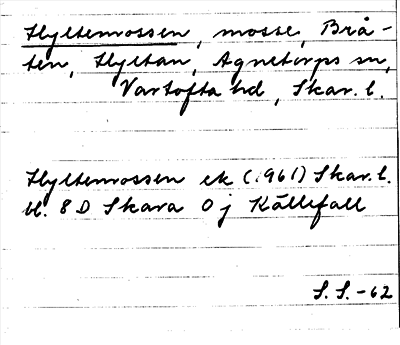 Hyltenrossen, mosse, Brå-
ten, Hyltan, Agnetorps sn,
Vartofta hd, Skar. l.
Hyltenrossen ek (1961) Skar. l.
bl. 8 D Skara 0 j Källefall
S. S. -62